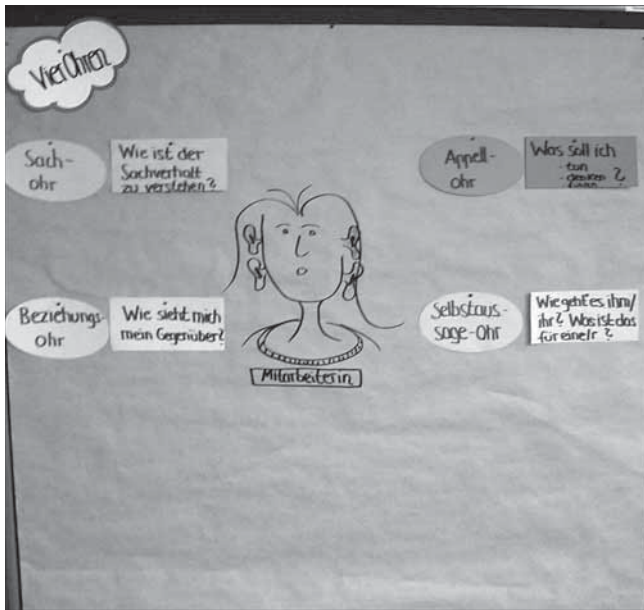 Vier Ohren
Sach-
ohr
Wie ist der
Sachverhalt
zu verstehen?
Appell-
ohr
Was soll ich
- tun
- denken ?
- fühlen
Beziehungs-
ohr
Wie sieht mich
mein Gegenüber?
Selbstaus-
sage-Ohr
Wie geht es ihm/
ihr? Was ist das
für eine/r ?
Mitarbeiterin